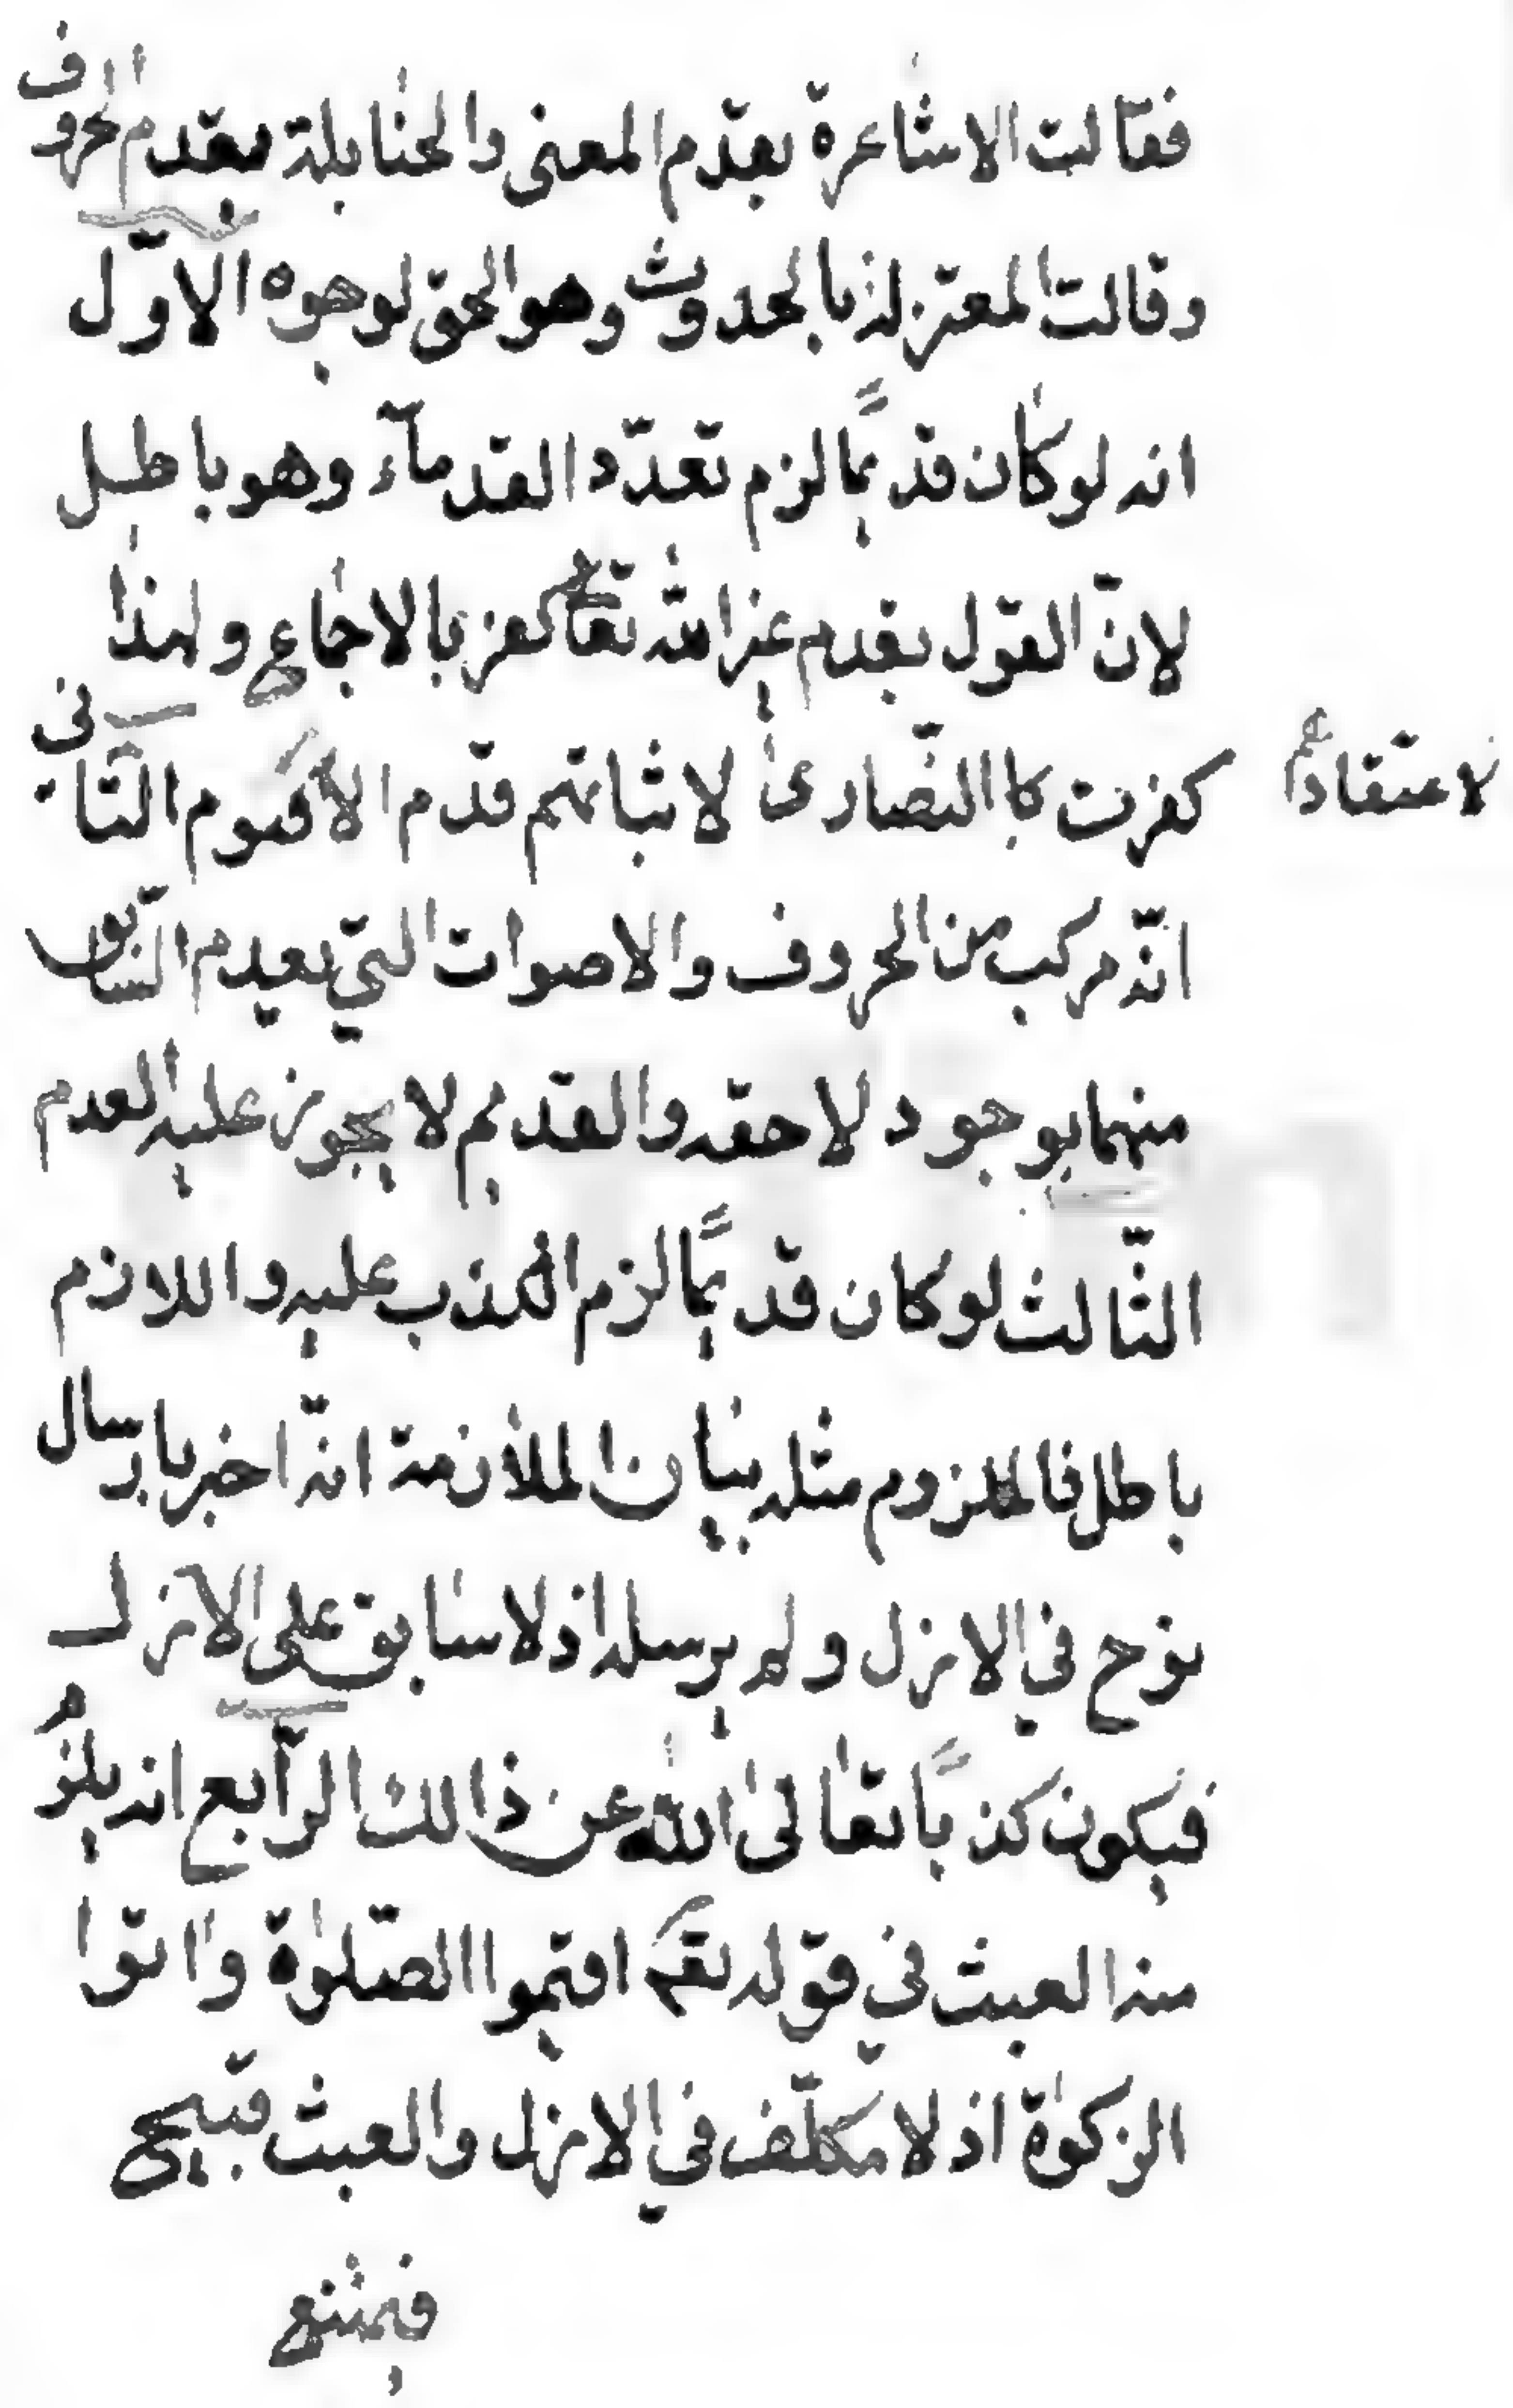 فقالت الاشاعرة بقدم المعنى والحنابلة بقدم الحروف
وقالت المعتزلة بالحدوث وهو الحق لوجوه الاوّل
انه لو كان قديمًا لزم تعدّد القدمآء وهو باطل
لانّ القول بقدم غير الله تعالى كفر بالاجماع ولهذا
كفرت كا النّصارى لاثباتهم قدم الاقنوم الثّاني
لاعتقادهم
انّه مركب من الحروف والاصوات التي يعدم السّابق
منهما بوجود لاحقه والقديم لا يجوز عليه العدم
الثّالث لو كان قديمًا لزم الكذب عليه واللازم
باطل فالملزوم مثله بيان الملازمة انّه اخبر بارسال
نوح في الازل ولم يرسله اذ لا سابق على الازل
فيكون كذبًا تعالى الله عن ذالك الرّابع انه يلزم
منه العبث في قوله تعالى اقيموا الصّلوة واتوا
الزكوة اذ لا مكلّف في الازل والعبث قبيح
فيمتنع